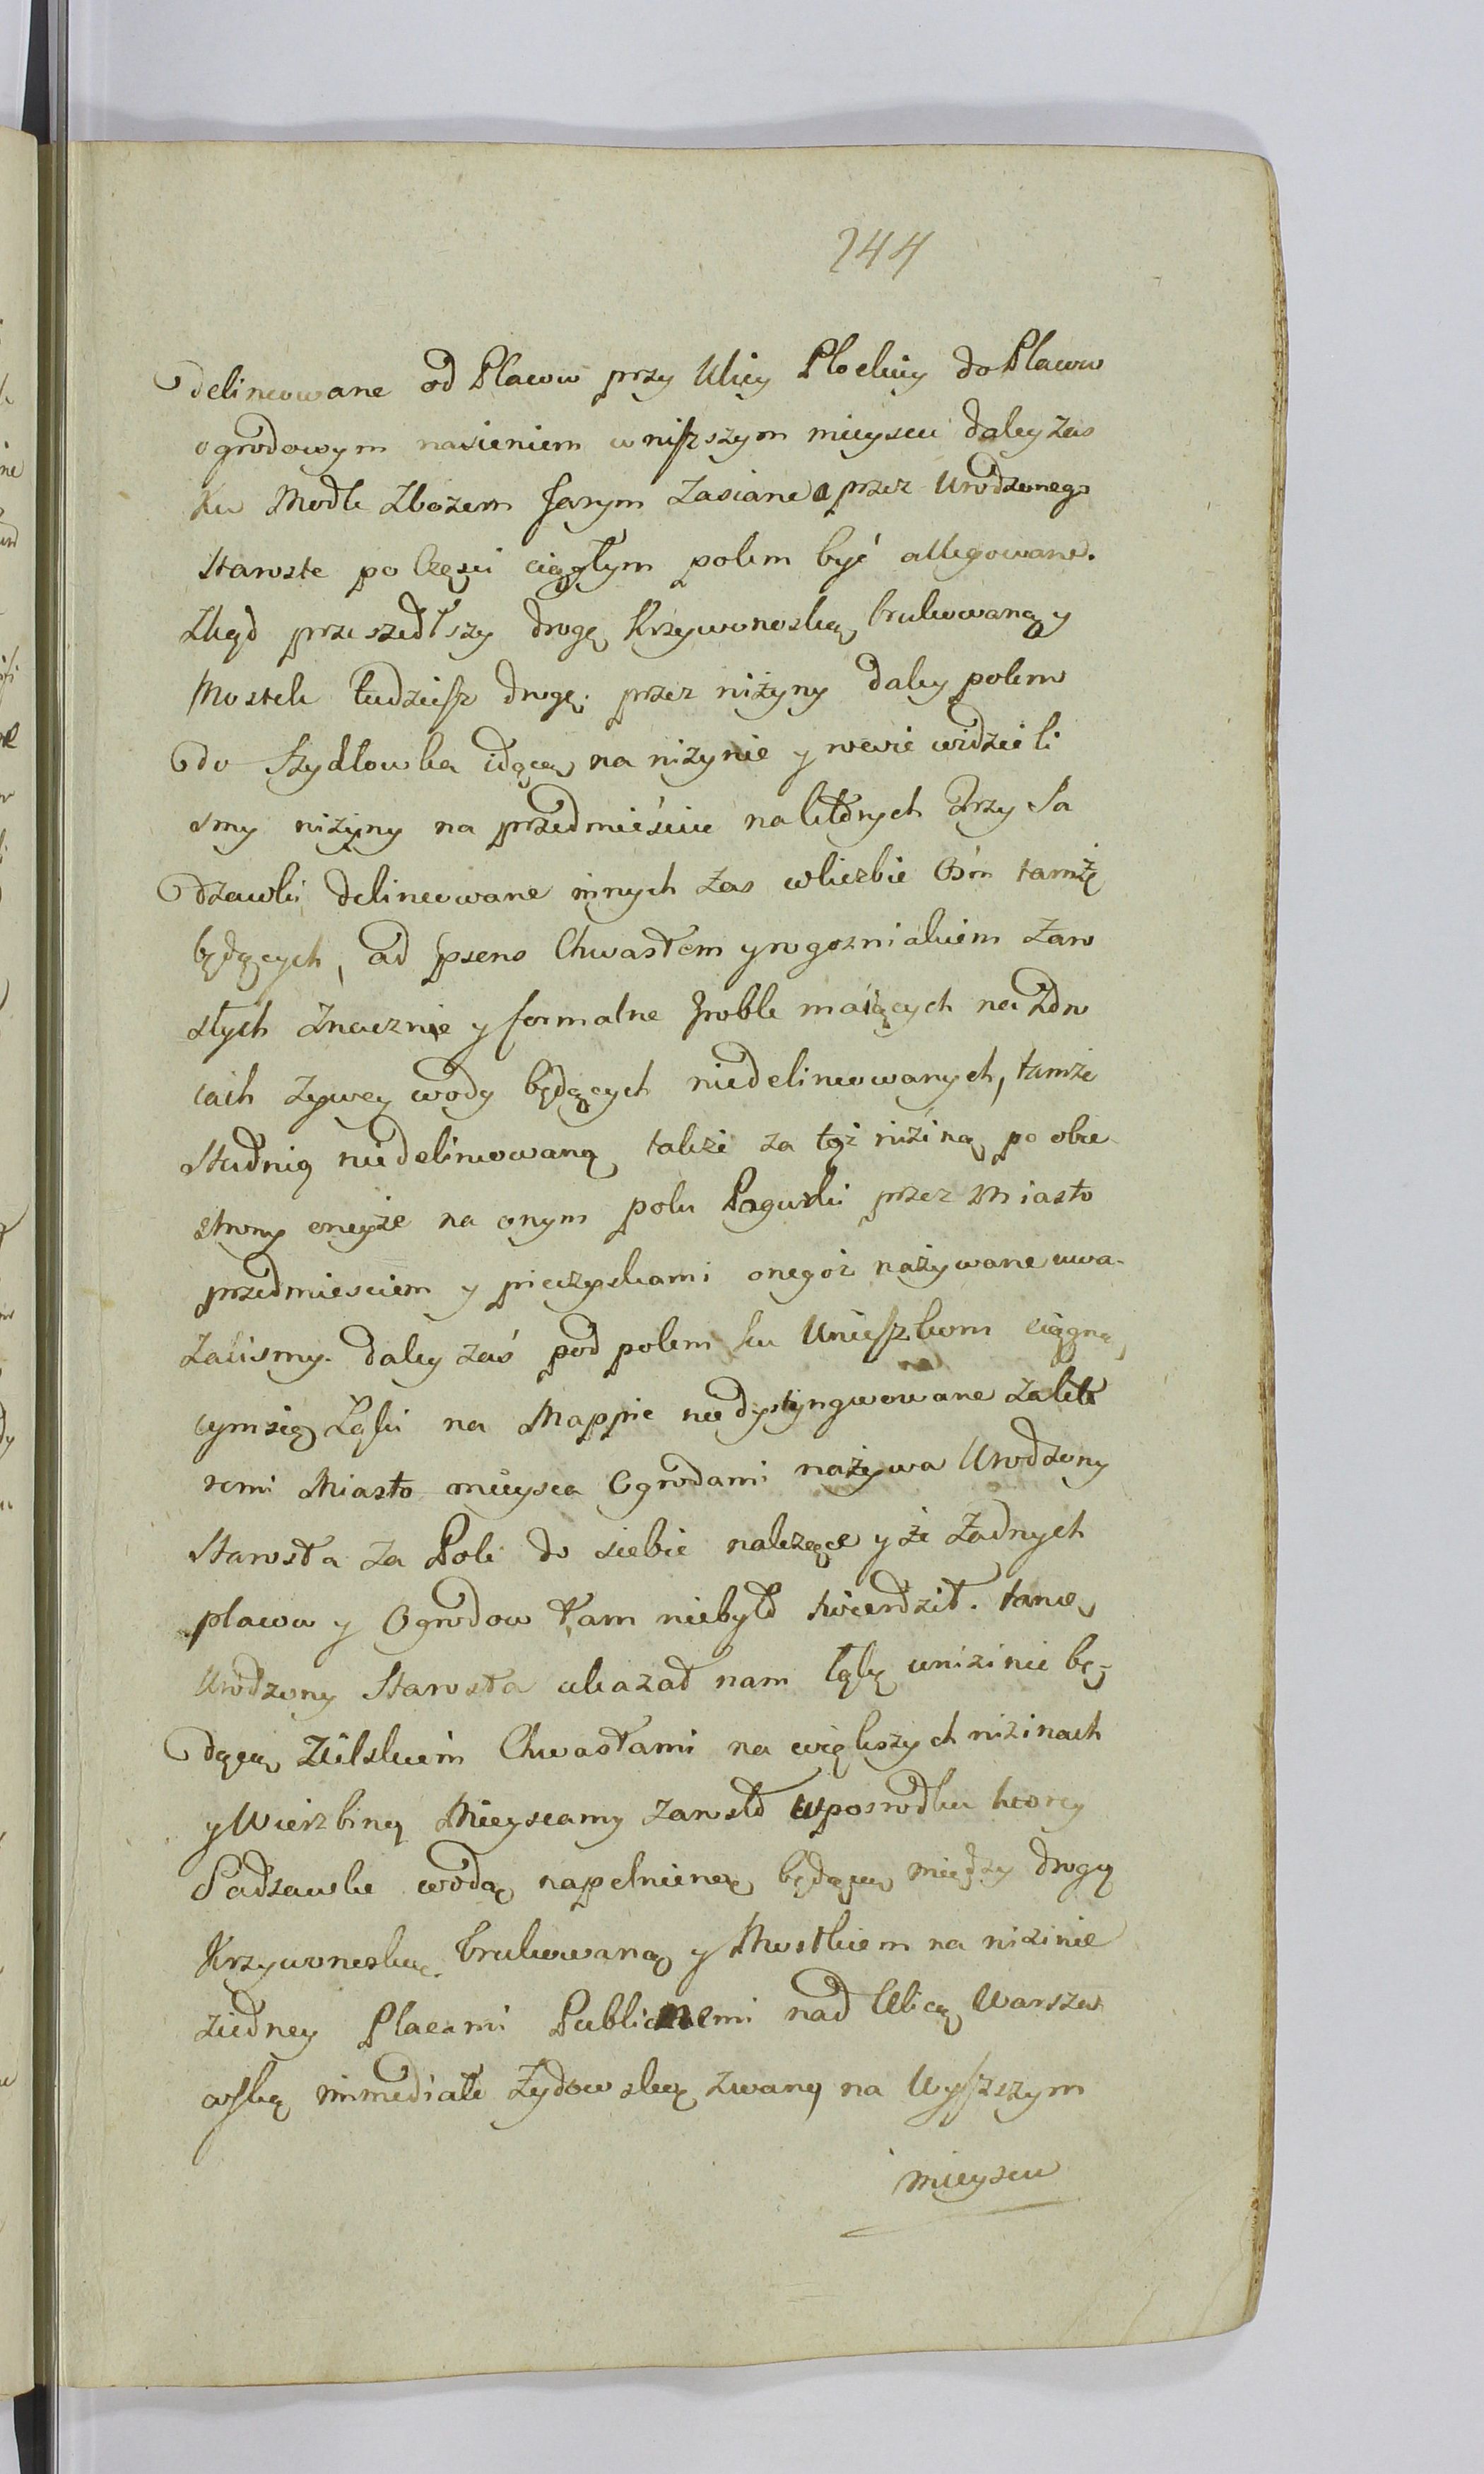 244
delineowane od Placow przy Ulicy Plockiey do Placow
ogrodowym nasieniem w niższym mieyscu daley zas
Ku Modle Zbożem Jarym zasiane przez Urodzonego
Staroste po Części ciągłym polem być allegowane.
Zkąd przeszedłszy drogę Krzywonoską brukowaną y
Mostek tudziesz drogę przez niżyny daley polem
do Szydłowka idącą na niżynie y rowie widzieli
smy niżyny na przedmieściu na których trzy Sa
dzawki delineowane innych zas w liczbie Ośm tamże
będących, ad psens Chwastem y rogoznialiem zaro
słych znacznie y formalne groble maiących na Zdro
iach zywey wody będących niedelineowanych, tamże
Studnią niedelineowaną takze za tąż niziną po obu
strony oneyże na onym polu Pagurki przez Miasto
przedmiesciem y piecżyskami onegoż nażywane uwa-
żalismy. daley zaś pod polem ku Unieszkom ciągną
cym się Łąki na Mappie nie dystyngwowane za któ
remi Miasto mieysca Ogrodami nażywa Urodzony
Starosta za Pole do siebie należące y że żadnych
placow y Ogrodow tam niebyło twierdził. tamże
Urodzony Starosta ukazał nam łąkę w nizinie bę-
dącą Zielskiem Chwastami na większych nizinach
y Wierzbiną Mieyscamy zarosłą w posrodku ktorey
Sadzawke wodą napełnioną będącą między drogą
Krzywonoską brukowaną y Mostkiem na nizinie
ziedney Placami Publicznemi nad Ulicą Warsza
wską immediate Zydowską zwaną na Wyszszym
mieyscu